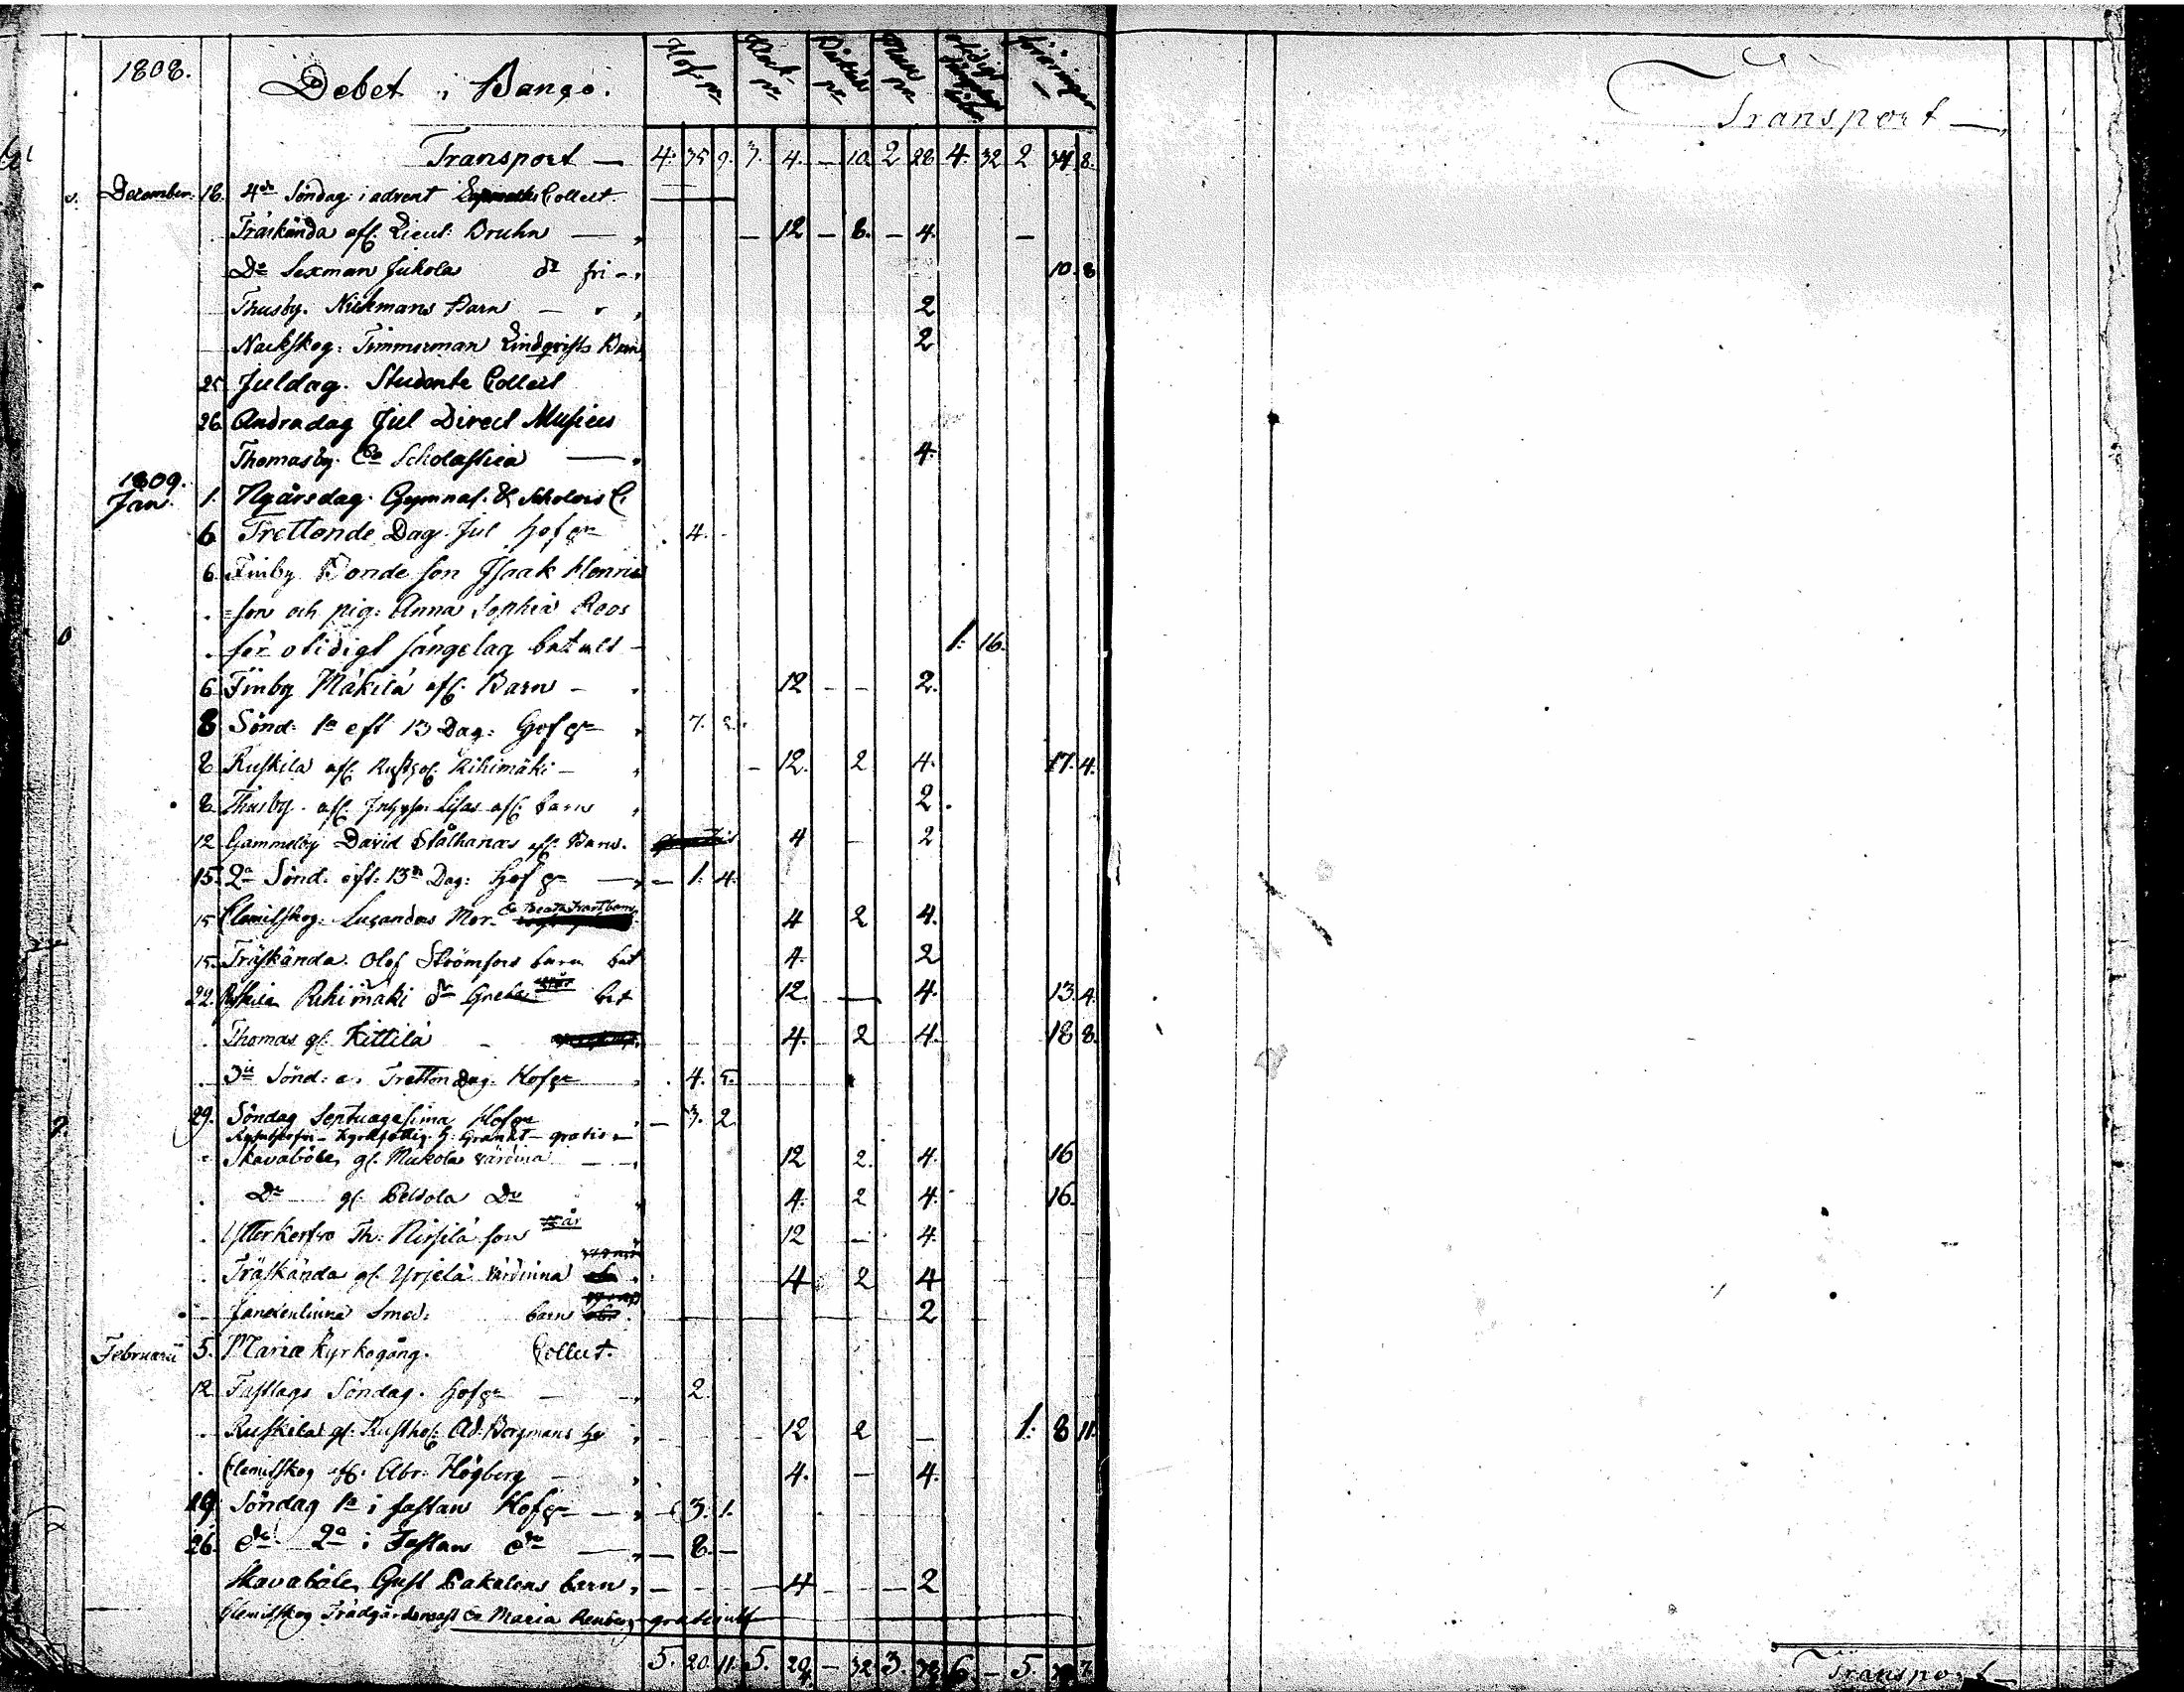 1808. Debet i Banço. Håf pr Klock pr Bårkläd pr Mull pr otidigt sängelag böter löningar
Transport — 4: 35 9. 3. 4. — 10. 2 28 4. 32 2 34. 8.
December. 18. 4de Söndag i advent Collect.
Träskända afl. Lieut: Bruhn — 12 — 8. — 4. —
Do Sexman Jukola do fri — 10. 8
Thusby. Nickmans Barn — 2
Nackskog: Timmerman Lindqvists Barn 2
25 Juldag. Studente Collect
26 Andradag Jul Direct Musices
Thomasby. Eo Scholastica — 4
1809. Jan. 1. Nyårsdag. Gymnas. & Scholars C.
6 Trettonde Dag Jul Hofgr 4. -
6. Finby Bonde son Isaak Henrics
son och pig: Anna Sophia Roos
för otidigt sängelag betalt - 1: 16.
6 Finby Mäkilä afl. Barn - 12 - - 2.
8 Sönd: 1a eft 13 Dag: Hofgr 7. 2.
8 Ruskila afl. Rusth. Rihimäki - 12. 2 4. 17. 4.
8 Thusby afl. Lisas afl. barn 2.
12 Gammelby David Stålhanas afl. Barn. 4 - 2
15. 2a Sönd. eft: 13de Dag: Hofgr — 1: 4.
15 Clemisskog: Lusandas Mor. 4 2 4.
15. Träskända. Olof Strömfors barn bet 4. 2
22. Ruskila Rihimäki dr Greta bet 12. — 4. 13. 4.
Thomas gl. Kittilä - 4. 2 4. 18 8.
3de Sönd: e. Tretton Dag. Hofgr 4. 5.
29. Söndag Septuagesima Hofgr — 3. 2
Kyrkfattig. G. Granat - gratis -
Skavaböle, gl. Mickola värdina — 12 2. 4. 16
Do gl. Pelsola Do 4. 2 4. 16.
Ytterkerfvo Th: Nissilä son 12 - 4.
Träskända gl. Yrjelä värdinna 4 2 4
Janckenlinna Smed: barn 2
Februarii 5. Mariæ Kyrkogång. Collect.
12 Fastlags Söndag. Hofgr — 2
Ruskila gl. Rusthol. Ad. Bergmans 12 2 — 1: 8 11.
Clemisskog afl. Abr: Högberg — 4. - 4.
19. Söndag 1a i fastan Hofgr — 3. 1.
26. do 2a i Fastan do — 8. —
Skavaböle, Gust Pakalens barn, — 4 — 2
Clemisskog Trädgårdsmast Eo Maria Renberg gratis
5. 20. 11. 5. 29 — 32 3. 6. — 5. 7.
Transport —
Transport —